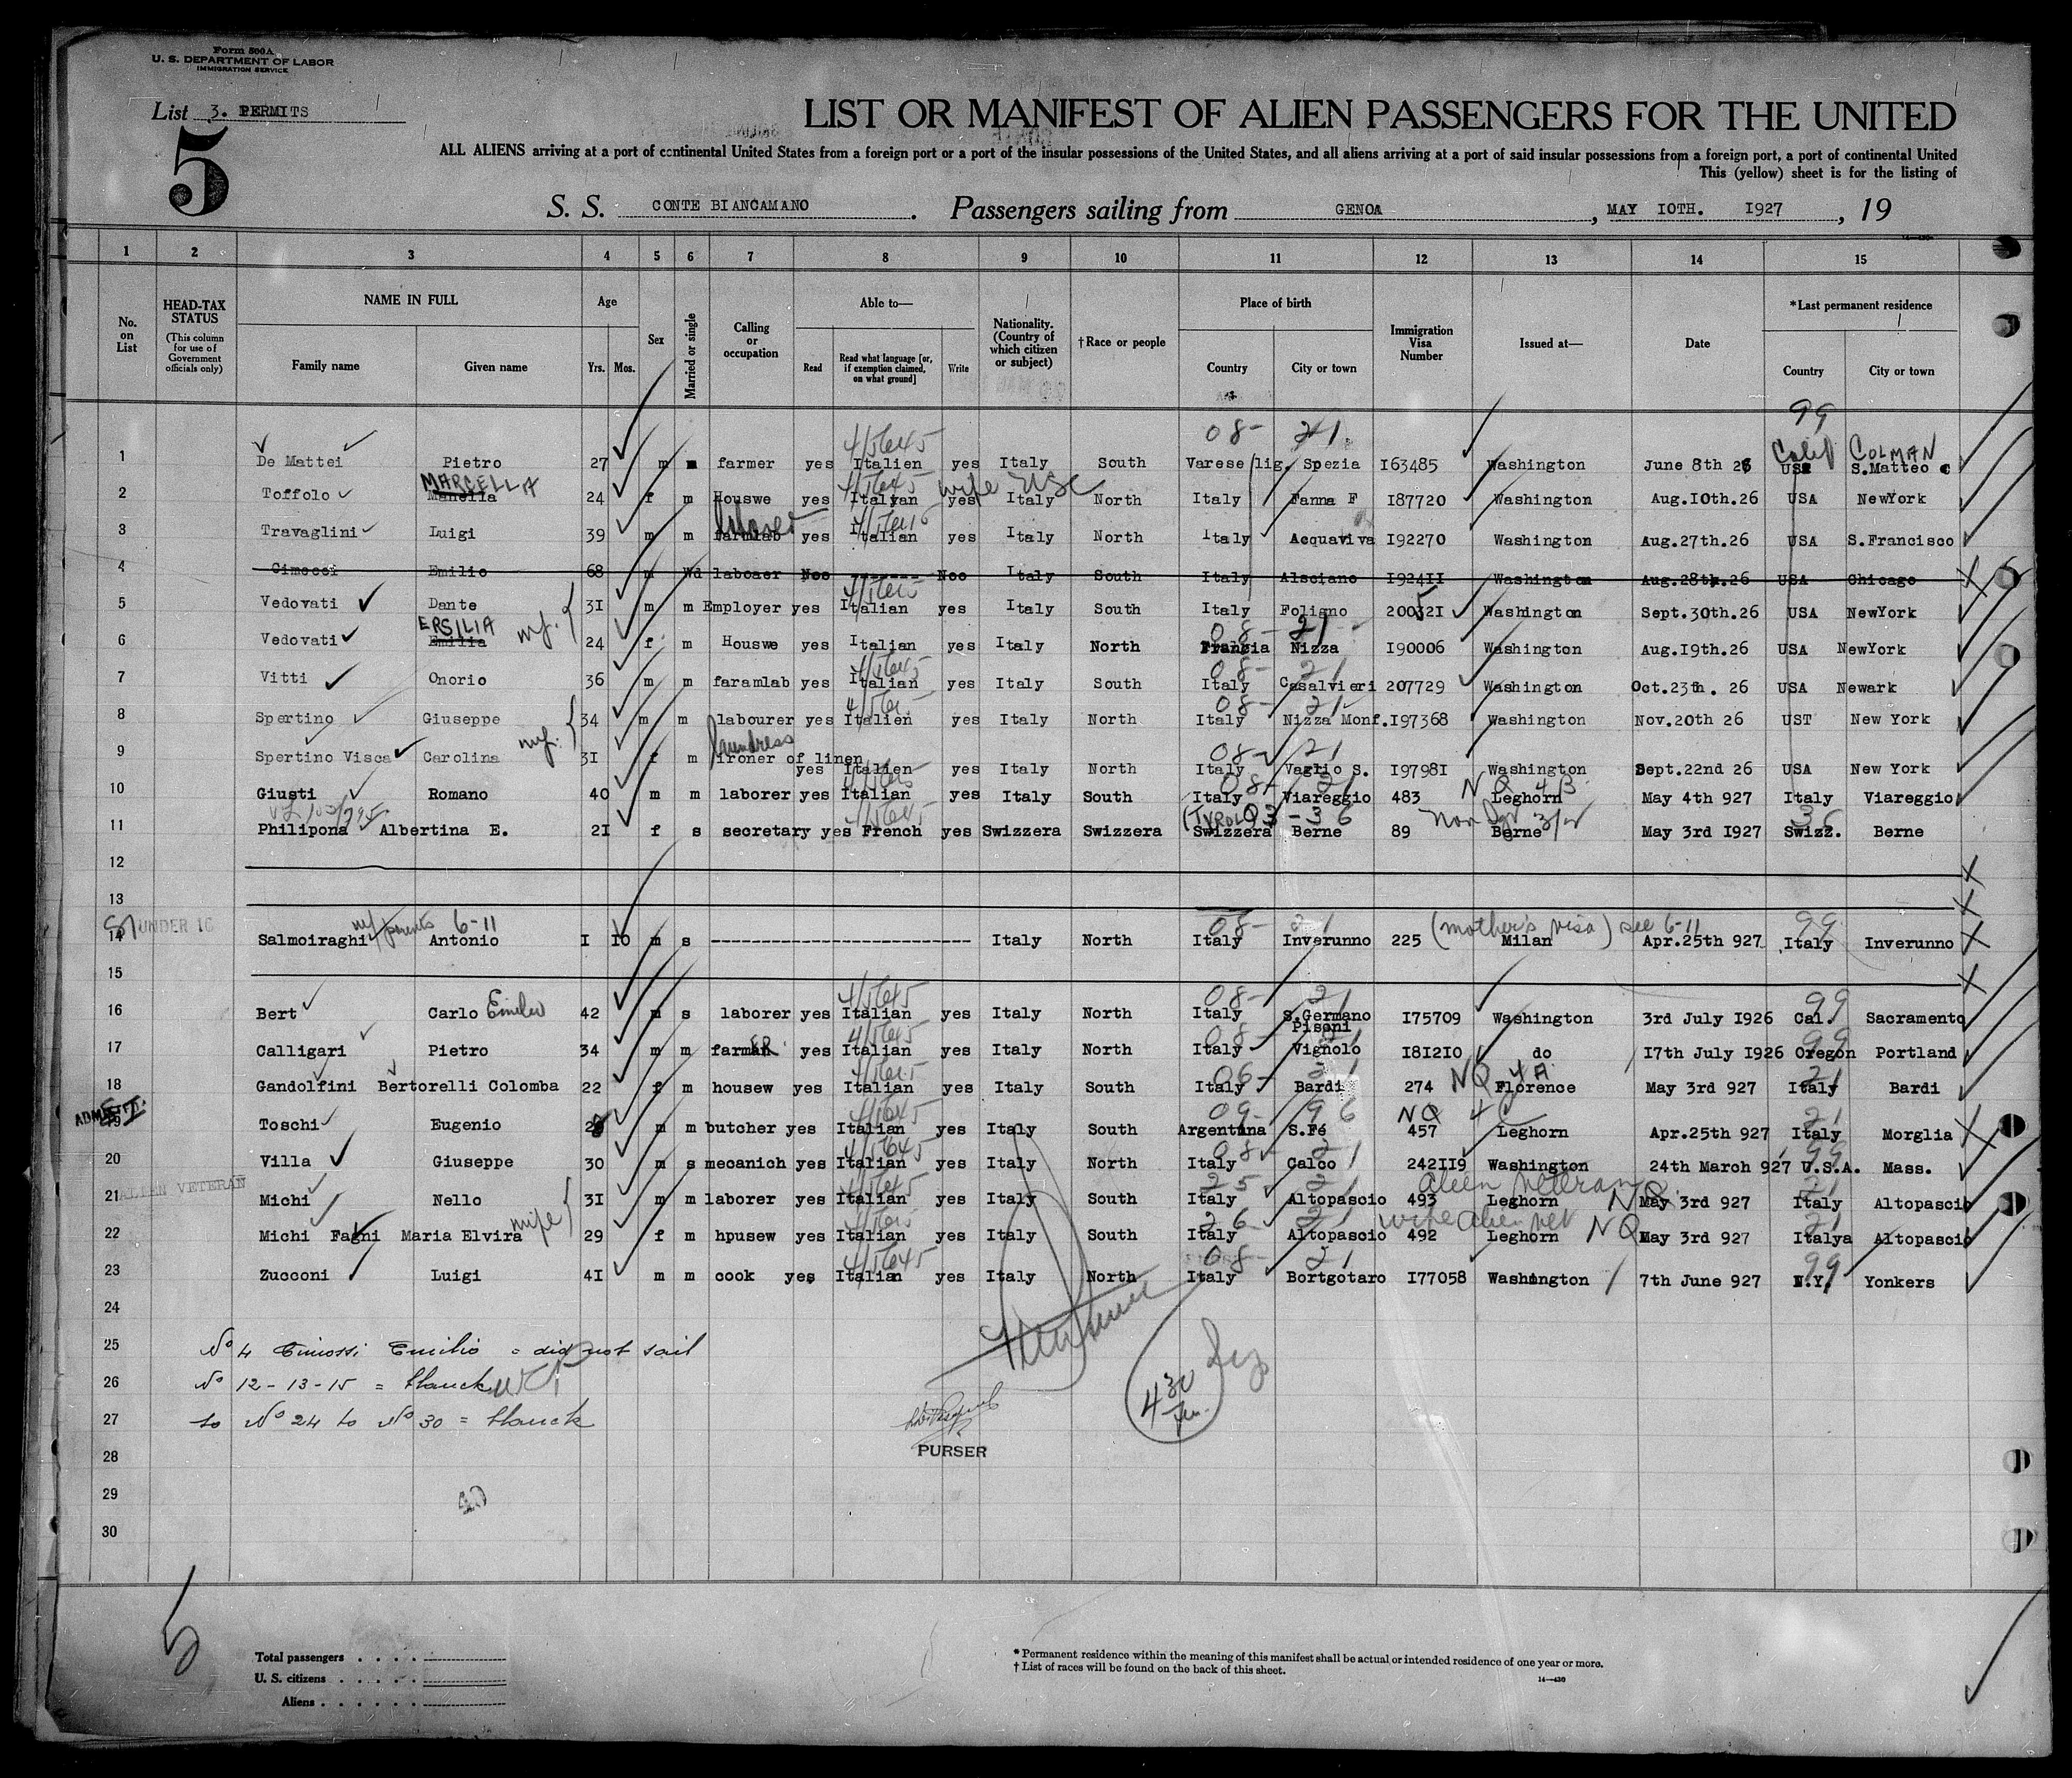 Form 500A
U. S. DEPARTMENT OF LABOR
IMMIGRATION SERVICE
List 3. PERMITS
5
LIST OR MANIFEST OF ALIEN PASSENGERS FOR THE UNITED
ALL ALIENS arriving at a port of continental United States from a foreign port or a port of the insular possessions of the United States, and all aliens arriving at a port of said insular possessions from a foreign port, a port of continental United
This (yellow) sheet is for the listing of
S. S. CONTE BIANCAMANO. Passengers sailing from GENOA, MAY IOTH. I927, 19
1 2 3 4 5 6 7 8 9 10 11 12 13 14 15
No. on List
HEAD-TAX STATUS (This column for use of Government officials only)
NAME IN FULL Family name Given name
Age Yrs. Mos.
Sex
Married or single
Calling or occupation
Able to— Read Read what language [or, if exemption claimed, on what ground] Write
Nationality. (Country of which citizen or subject)
†Race or people
Place of birth Country City or town
Immigration Visa Number
Issued at—
Date
*Last permanent residence Country City or town
08- 21. 99
4/5645 Calif COLMAN
1 De Mattei Pietro 27 m m farmer yes Italien yes Italy South Varese lig. Spezia I63485 Washington June 8th 26 USA S.Matteo c
MARCELLA 4/5645 wife USC
2 Toffolo Manella 24 f m Houswe yes Italyan yes Italy North Italy Fanna F I87720 Washington Aug.I0th.26 USA NewYork
3 Travaglini Luigi 39 m m farmlab yes Italian yes Italy North Italy Acquaviva I92270 Washington Aug.27th.26 USA S.Francisco
4 Cimossi Emilio 68 m Wd laboaer Noo ------- Noo Italy South Italy Alsciano I924II Washington Aug.28th.26 USA Chicago
5 Vedovati Dante 3I m m Employer yes Italian yes Italy South Italy Foligno 20032I Washington Sept.30th.26 USA NewYork
ERSILIA 08- 21
6 Vedovati Emilia 24 f m Houswe yes Italian yes Italy North Francia Nizza I90006 Washington Aug.I9th.26 USA NewYork
4/5645 08- 21
7 Vitti Onorio 36 m m faramlab yes Italian yes Italy South Italy Casalvieri 207729 Washington Oct.23th. 26 USA Newark
08- 21
8 Spertino Giuseppe 34 m m labourer yes Italien yes Italy North Italy Nizza Monf. I97368 Washington Nov.20th 26 UST New York
laundress 08- 21
9 Spertino Visca Carolina 3I f m ironer of linen yes Italien yes Italy North Italy Vaglio S. I9798I Washington Sept.22nd 26 USA New York
08- 21 NQ 4B
10 Giusti Romano 40 m m laborer yes Italian yes Italy South Italy Viareggio 483 Leghorn May 4th 927 Italy Viareggio
4/5645 (TYROL 03 - 36 36
11 Philipona Albertina E. 2I f s secretary yes French yes Swizzera Swizzera Swizzera Berne 89 Berne May 3rd I927 Swizz. Berne
12
13
UNDER 16 w/ parents 6-11 08- 21 (mother's visa) see 6-11 99
14 Salmoiraghi Antonio I IO m s -------------------------- Italy North Italy Inverunno 225 Milan Apr.25th 927 Italy Inverunno
15
4/5645 08- 21 99
16 Bert Carlo 42 m s laborer yes Italian yes Italy North Italy S.Germano Pisoni I75709 Washington 3rd July I926 Cal. Sacramento
ER. 4/5645 08- 99
17 Calligari Pietro 34 m m farmer yes Italian yes Italy North Italy Vignolo I8I2IO do I7th July I926 Oregon Portland
06- 21 NQ 4A 21
18 Gandolfini Bertorelli Colomba 22 f m housew yes Italian yes Italy South Italy Bardi 274 Florence May 3rd 927 Italy Bardi
ADMITTED. 4/5645 09- 96 NQ 4C 21
19 Toschi Eugenio m m butcher yes Italian yes Italy South Argentina S.Fé 457 Leghorn Apr.25th 927 Italy Morglia
4/5645 08- 21 99
20 Villa Giuseppe 30 m s mecanich yes Italian yes Italy North Italy Calco 242II9 Washington 24th March 927 U.S.A. Mass.
ALIEN VETERAN 4/5645 25- 21 alien veteran NQ 21
21 Michi Nello 3I m m laborer yes Italian yes Italy South Italy Altopascio 493 Leghorn May 3rd 927 Italy Altopascio
wife 26- 21 wife alien vet NQ 21
22 Michi Fagni Maria Elvira 29 f m hpusew yes Italian yes Italy South Italy Altopascio 492 Leghorn May 3rd 927 Italya Altopascio
4/5645 08- 21 99
23 Zucconi Luigi 4I m m cook yes Italian yes Italy North Italy Bortgotaro I77058 Washington 7th June 927 N.Y. Yonkers
24
25 No 4 Cimossi Emilio = did not sail
26 No 12-13-15 = blanck
27 to No 24 to No 30 = blanck
4 30
PURSER
28
29
30
5
Total passengers
U. S. citizens
Aliens
* Permanent residence within the meaning of this manifest shall be actual or intended residence of one year or more.
† List of races will be found on the back of this sheet.
14—430